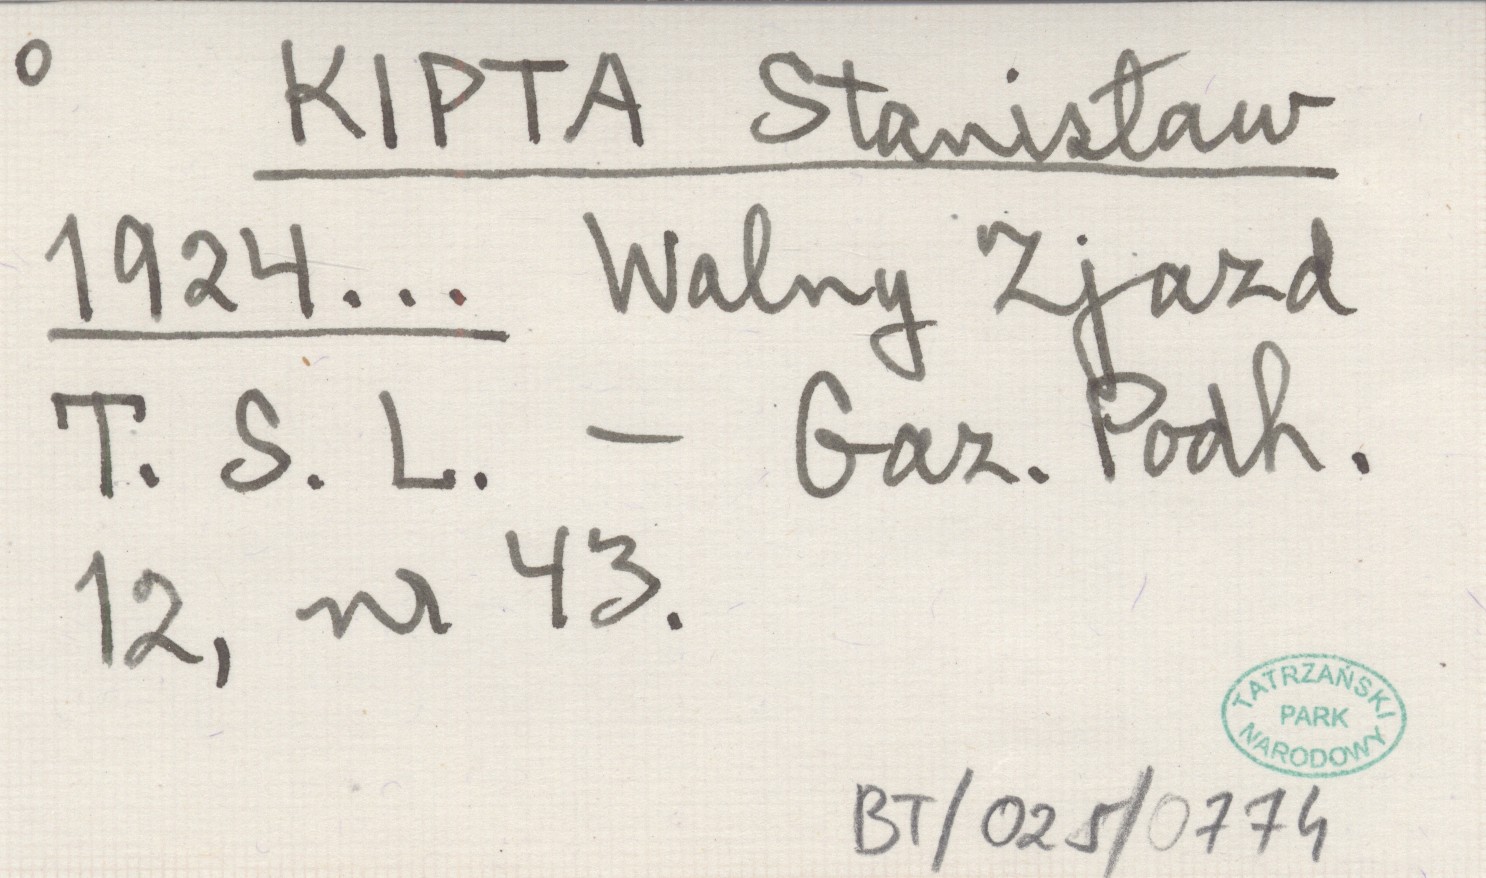 o KIPTA Stanisław
1924... Walny Zjazd
T. S. L. — Gaz. Podh.
12, nr 43.
TATRZAŃSKI
PARK
NARODOWY
BT/025/0774